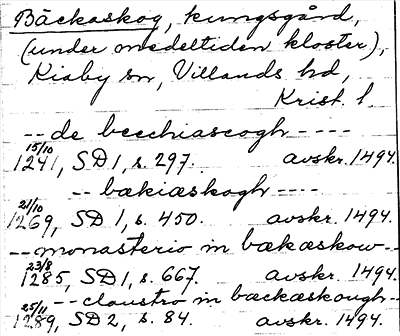 Bäckaskog, kungsgård,
(under medeltiden kloster),
Kiaby sn, Villands hd,
Krist. l.
-- de becchiascogh ----
15/10 1241, SD 1, s. 297. avskr. 1494.
-- bækiæskogh ----
21/10 1269, SD 1, s. 450. avskr. 1494.
-- monasterio in bækæskow --
23/8 1285, SD 1, s. 667. avskr. 1494.
-- claustro in bæckæskough --
25/11 1289, SD 2, s. 84. avskr. 1494.